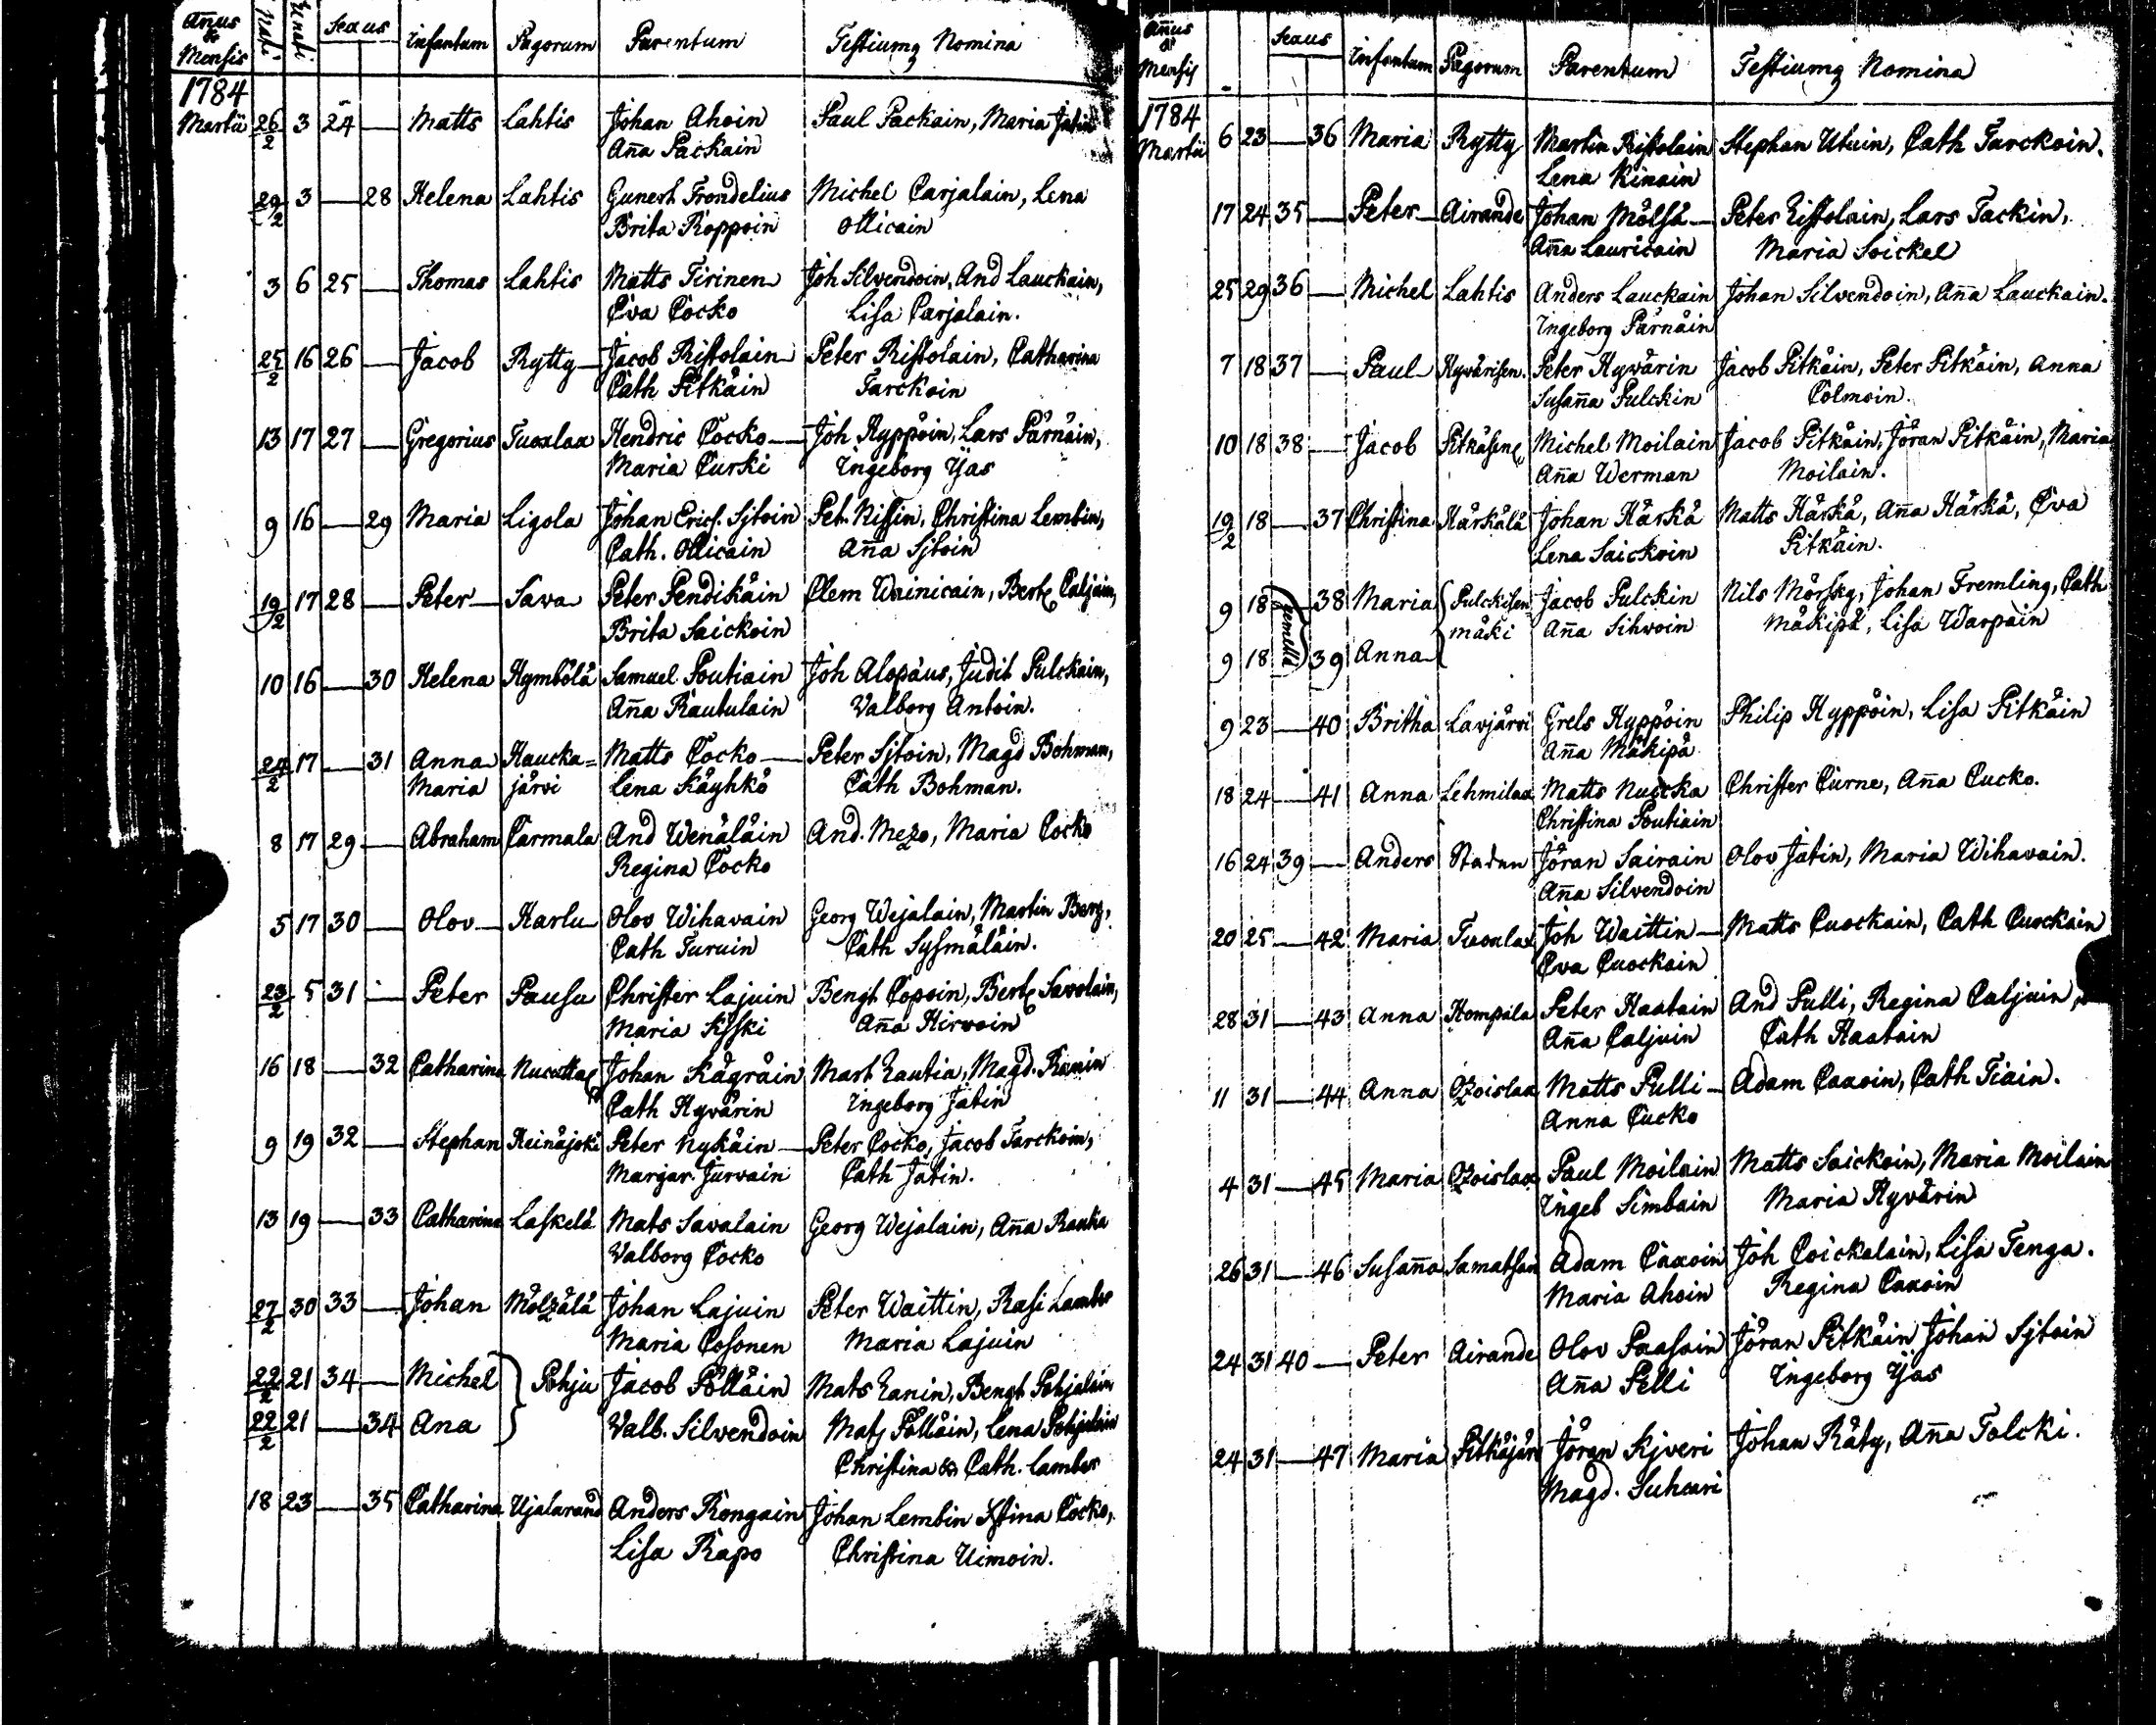 Añus & Mensis Nati Renati Sexus Infantum Pagorum Parentum Testiumq Nomina
1784
Martii 26/2 3 24 — Matts Lahtis Johan Ahoin Paul Packain, Maria Jatin
Aña Packain
29/2 3 — 28 Helena Lahtis Gunert Trondelius Michel Carjalain, Lena
Brita Roppoin Ollicain
3 6 25 — Thomas Lahtis Matts Tirinen Joh Silvendoin, And Lauckain,
Eva Cocko Lisa Carjalain.
25/2 16 26 — Jacob Rytty Jacob Ristolain Peter Ristolain, Catharina
Cath Pitkäin Tarckoin
13 17 27 — Gregorius Tuoxlax Hendric Cocko Joh Hyppöin, Lars Pärnäin,
Maria Curki Ingeborg Yjas
9 16 — 29 Maria Ligola Johan Erics. Sjtoin Pet. Nissin, Christina Lembin,
Cath. Ollicain Aña Sjtoin
19/2 17 28 — Peter Sava Peter Pendikäin Clem Wainicain, Bert Caljuin,
Brita Saickoin
10 16 — 30 Helena Hymbölä Samuel Poutiain Joh Alopäus, Judit Pulckain,
Aña Rautulain Valborg Antoin.
24/2 17 — 31 Anna Haucka= Matts Cocko Peter Sjtoin, Magd Bohman,
Maria järvi Lena Käyhkö Cath Bohman.
8 17 29 — Abraham Carmala And Wenäläin And. Mezo, Maria Cocko
Regina Cocko
5 17 30 — Olov Harlu Olov Wihavain Georg Wejalain, Martin Berg,
Cath Turuin Cath Sysmäläin.
23/2 5 31 — Peter Pausu Christer Lajuin Bengt Copoin, Bert Savolain,
Maria Kjski Aña Hirvoin
16 18 — 32 Catharina Johan Kägräin Mart Rautia, Magd. Ranin
Cath Hyvärin Ingeborg Jatin
9 19 32 — Stephan Reinäjoki Peter Nykäin Peter Cocko, Jacob Tarckoin,
Margar. Jurvain Cath Jatin.
13 19 — 33 Catharina Laskelä Mats Savalain Georg Wejalain, Aña Rautia
Valborg Cocko
27/2 30 33 — Johan Mölzälä Johan Lajuin Peter Waittin, Rasi Lambes
Maria Cosonen Maria Lajuin
22/2 21 34 — Michel Pohju Jacob Pölläin Mats Ranin, Bengt Pohjalain
22/2 21 — 34 Ana Valb. Silvendoin Mats Pölläin, Lena Pohjalain
Christina & Cath. Lambes
18 23 — 35 Catharina Ujalarand Anders Rongain Johan Lembin Xstina Cocko,
Lisa Rapo Christina Uimoin.
Añus & Mensis Sexus Infantum Pagorum Parentum Testiumq Nomina
1784
Martii 6 23 — 36 Maria Rytty Martin Ristolain Stephan Utuin, Cath Tarckoin.
Lena Kinain
17 24 35 — Peter Airande Johan Mölsä Peter Ristolain, Lars Tackin,
Aña Lauricain Maria Soickel
25 29 36 — Michel Lahtis Anders Lauckain Johan Silvendoin, Aña Lauckain.
Ingeborg Pärnäin
7 18 37 — Paul Hyvärisen. Peter Hyvärin Jacob Pitkäin, Peter Pitkäin, Anna
Susaña Pulckin Colmoin.
10 18 38 — Jacob Michel Moilain Jacob Pitkäin, Jöran Pitkäin, Maria
Aña Werman Moilain.
19/2 18 — 37 Christina Härkälä Johan Härkä Matts Härkä, Aña Härkä, Eva
Lena Saickoin Pitkäin.
9 18 — 38 Maria Pulckisen Jacob Pulckin Nils Mörsky, Johan Fremling, Cath
Gemella mäki Aña Sihvoin Mäkipä, Lisa Warpain
9 18 39 Anna
9 23 — 40 Britha Lavjärvi Grels Hyppöin Philip Hyppöin, Lisa Pitkäin
Aña Mäkipä
18 24 — 41 Anna Lehmilax Matts Nuicka Christer Curne, Aña Cucko.
Christina Poutiain
16 24 39 — Anders Staden Jöran Sairain Olov Jatin, Maria Wihavain.
Aña Silvendoin
20 25 — 42 Maria Tuoxlax Joh Waittin Matts Cuockain, Cath Cuockain
Eva Cuockain
28 31 — 43 Anna Hompala Peter Haatain And Pulli, Regina Caljuin,
Aña Caljuin Cath Haatain
11 31 — 44 Anna Ozoislax Matts Pulli Adam Caxoin, Cath Tiain.
Anna Cucko
4 31 — 45 Maria Ozoislax Paul Moilain Matts Saickoin, Maria Moilain
Ingeb Simbain Maria Hyvärin
26 31 — 46 Susaña Samatsan Adam Caxoin Joh Coickalain, Lisa Tenga.
Maria Ahoin Regina Caxoin
24 31 40 — Peter Airande Olov Paasoin Jöran Pitkäin Johan Sjtoin
Aña Pelli Ingeborg Yjas
24 31 — 47 Maria Pitkäjärv Jöran Kjveri Johan Räty, Aña Tolcki.
Magd. Suhcari